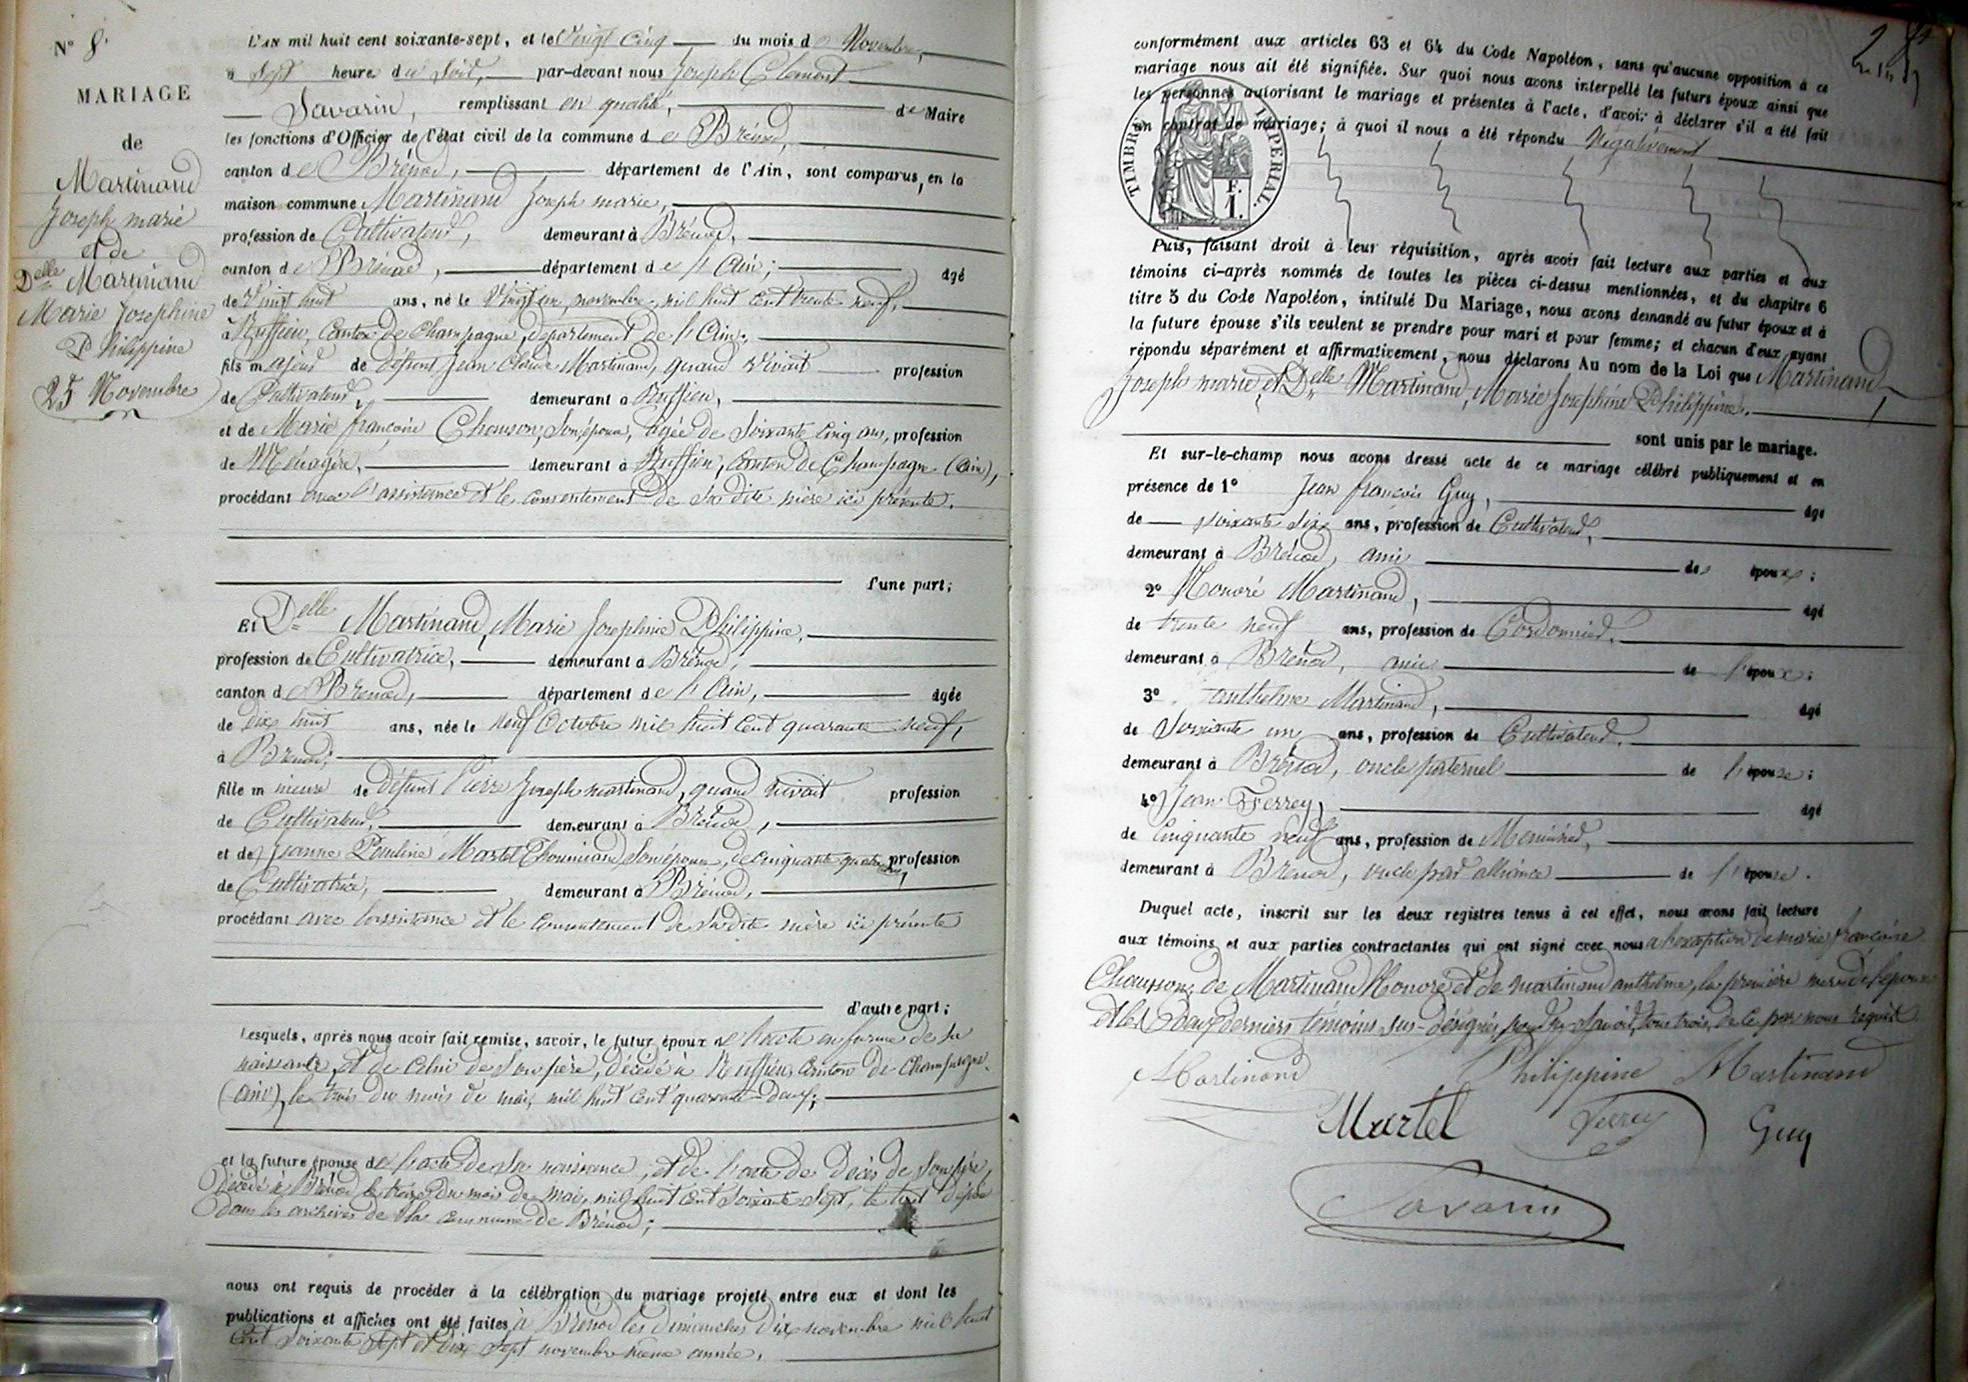 N° 8.
MARIAGE
de
Martinand
Joseph marie
et de
Delle Martinand
Marie Josephine
Philippine
25 Novembre
L'AN mil huit cent soixante-sept, et le Vingt cinq du mois de Novembre,
à Sept heure du Soir, par-devant nous Joseph Clément
Savarin, remplissant en qualité, de Maire
les fonctions d'Officier de l'état civil de la commune de Brénod,
canton de Brénod, département de l'Ain, sont comparus, en la
maison commune Martinand Joseph marie,
profession de Cultivateur, demeurant à Brénod,
canton de Brénod, département de l'Ain; âgé
de Vingt huit ans, né le Vingt un, novembre, mil huit cent trente neuf,
à Ruffieu, Canton de Champagne, département de l'Ain;
fils majeur de défunt Jean Claude Martinand, quand vivait profession
de Cultivateur, demeurant à Ruffieu,
et de Marie françoise Chauson, Son épouse, âgée de Soixante cinq ans, profession
de Ménagère, demeurant à Ruffieu, Canton de Champagne (Ain),
procédant avec l'assistance et le consentement de Sa dite mère ici présente.
d'une part;
Et Delle Martinand, Marie Josephine Philippine,
profession de Cultivatrice, demeurant à Brénod,
canton de Brénod, département de l'Ain, âgée
de Dix huit ans, née le neuf Octobre mil huit cent quarante neuf,
à Brénod;
fille mineure de défunt Pierre Joseph martinand, quand vivait profession
de Cultivateur, demeurant à Brénod,
et de Jeanne Pauline Martel Thoumiand, Son épouse, de cinquante quatre ans, profession
de Cultivatrice, demeurant à Brénod,
procédant avec l'assistance et le consentement de Sa dite mère ici présente
d'autre part;
Lesquels, après nous avoir fait remise, savoir, le futur époux de l'acte en forme de sa
naissance, et de celui de Son père, décédé à Ruffieu, Canton de Champagne
(Ain), le trois du mois de mai, mil huit cent quarante-deux;
et la future épouse de l'acte de Sa naissance, et de l'acte de décès de Son père,
Décédé à Brénod le trois du mois de mai, mil huit cent Soixante Sept, le tout déposé
dans les archives de la commune de Brénod;
nous ont requis de procéder à la célébration du mariage projeté entre eux et dont les
publications et affiches ont été faites à Brénod les dimanches Dix novembre mil huit
Cent Soixante Sept et dix Sept novembre même année.
conformément aux articles 63 et 64 du Code Napoléon, sans qu'aucune opposition à ce
mariage nous ait été signifiée. Sur quoi nous avons interpellé les futurs époux ainsi que
les personnes autorisant le mariage et présentes à l'acte, d'avoir à déclarer s'il a été fait
un contrat de mariage; à quoi il nous a été répondu Négativement
TIMBRE IMPERIAL.
F.
1.
Puis, faisant droit à leur réquisition, après avoir fait lecture aux parties et aux
témoins ci-après nommés de toutes les pièces ci-dessus mentionnées, et du chapitre 6
titre 5 du Code Napoléon, intitulé Du Mariage, nous avons demandé au futur époux et à
la future épouse s'ils veulent se prendre pour mari et pour femme; et chacun d'eux ayant
répondu séparément et affirmativement, nous déclarons Au nom de la Loi que Martinand,
Joseph marie, et Delle Martinand, Marie Joséphine Philippine,
sont unis par le mariage.
Et sur-le-champ nous avons dressé acte de ce mariage célébré publiquement et en
présence de 1° Jean françois Guy, âgé
de soixante six ans, profession de Cultivateur,
demeurant à Brénod, ami des époux;
2° Honoré Martinand, âgé
de trente neuf ans, profession de Cordonnier,
demeurant à Brénod, ami de l'époux;
3° Anthelme Martinand, âgé
de Soixante un ans, profession de Cultivateur.
demeurant à Brénod, oncle paternel de l'épouse;
4° Jean Ferrey, âgé
de Cinquante neuf ans, profession de Menuisier,
demeurant à Brénod, oncle par alliance de l'épouse.
Duquel acte, inscrit sur les deux registres tenus à cet effet, nous avons fait lecture
aux témoins et aux parties contractantes qui ont signé avec nous a l'exception de marie françoise
Chauson, de Martinand Honoré et de martinand anthelme, la première mère de l'époux
et les Deux derniers témoins sus-désignés pour ne Savoir, tous trois, de ce par nous requis
Martinand Philippine Martinand
Martel Ferrey Guy
Savarin